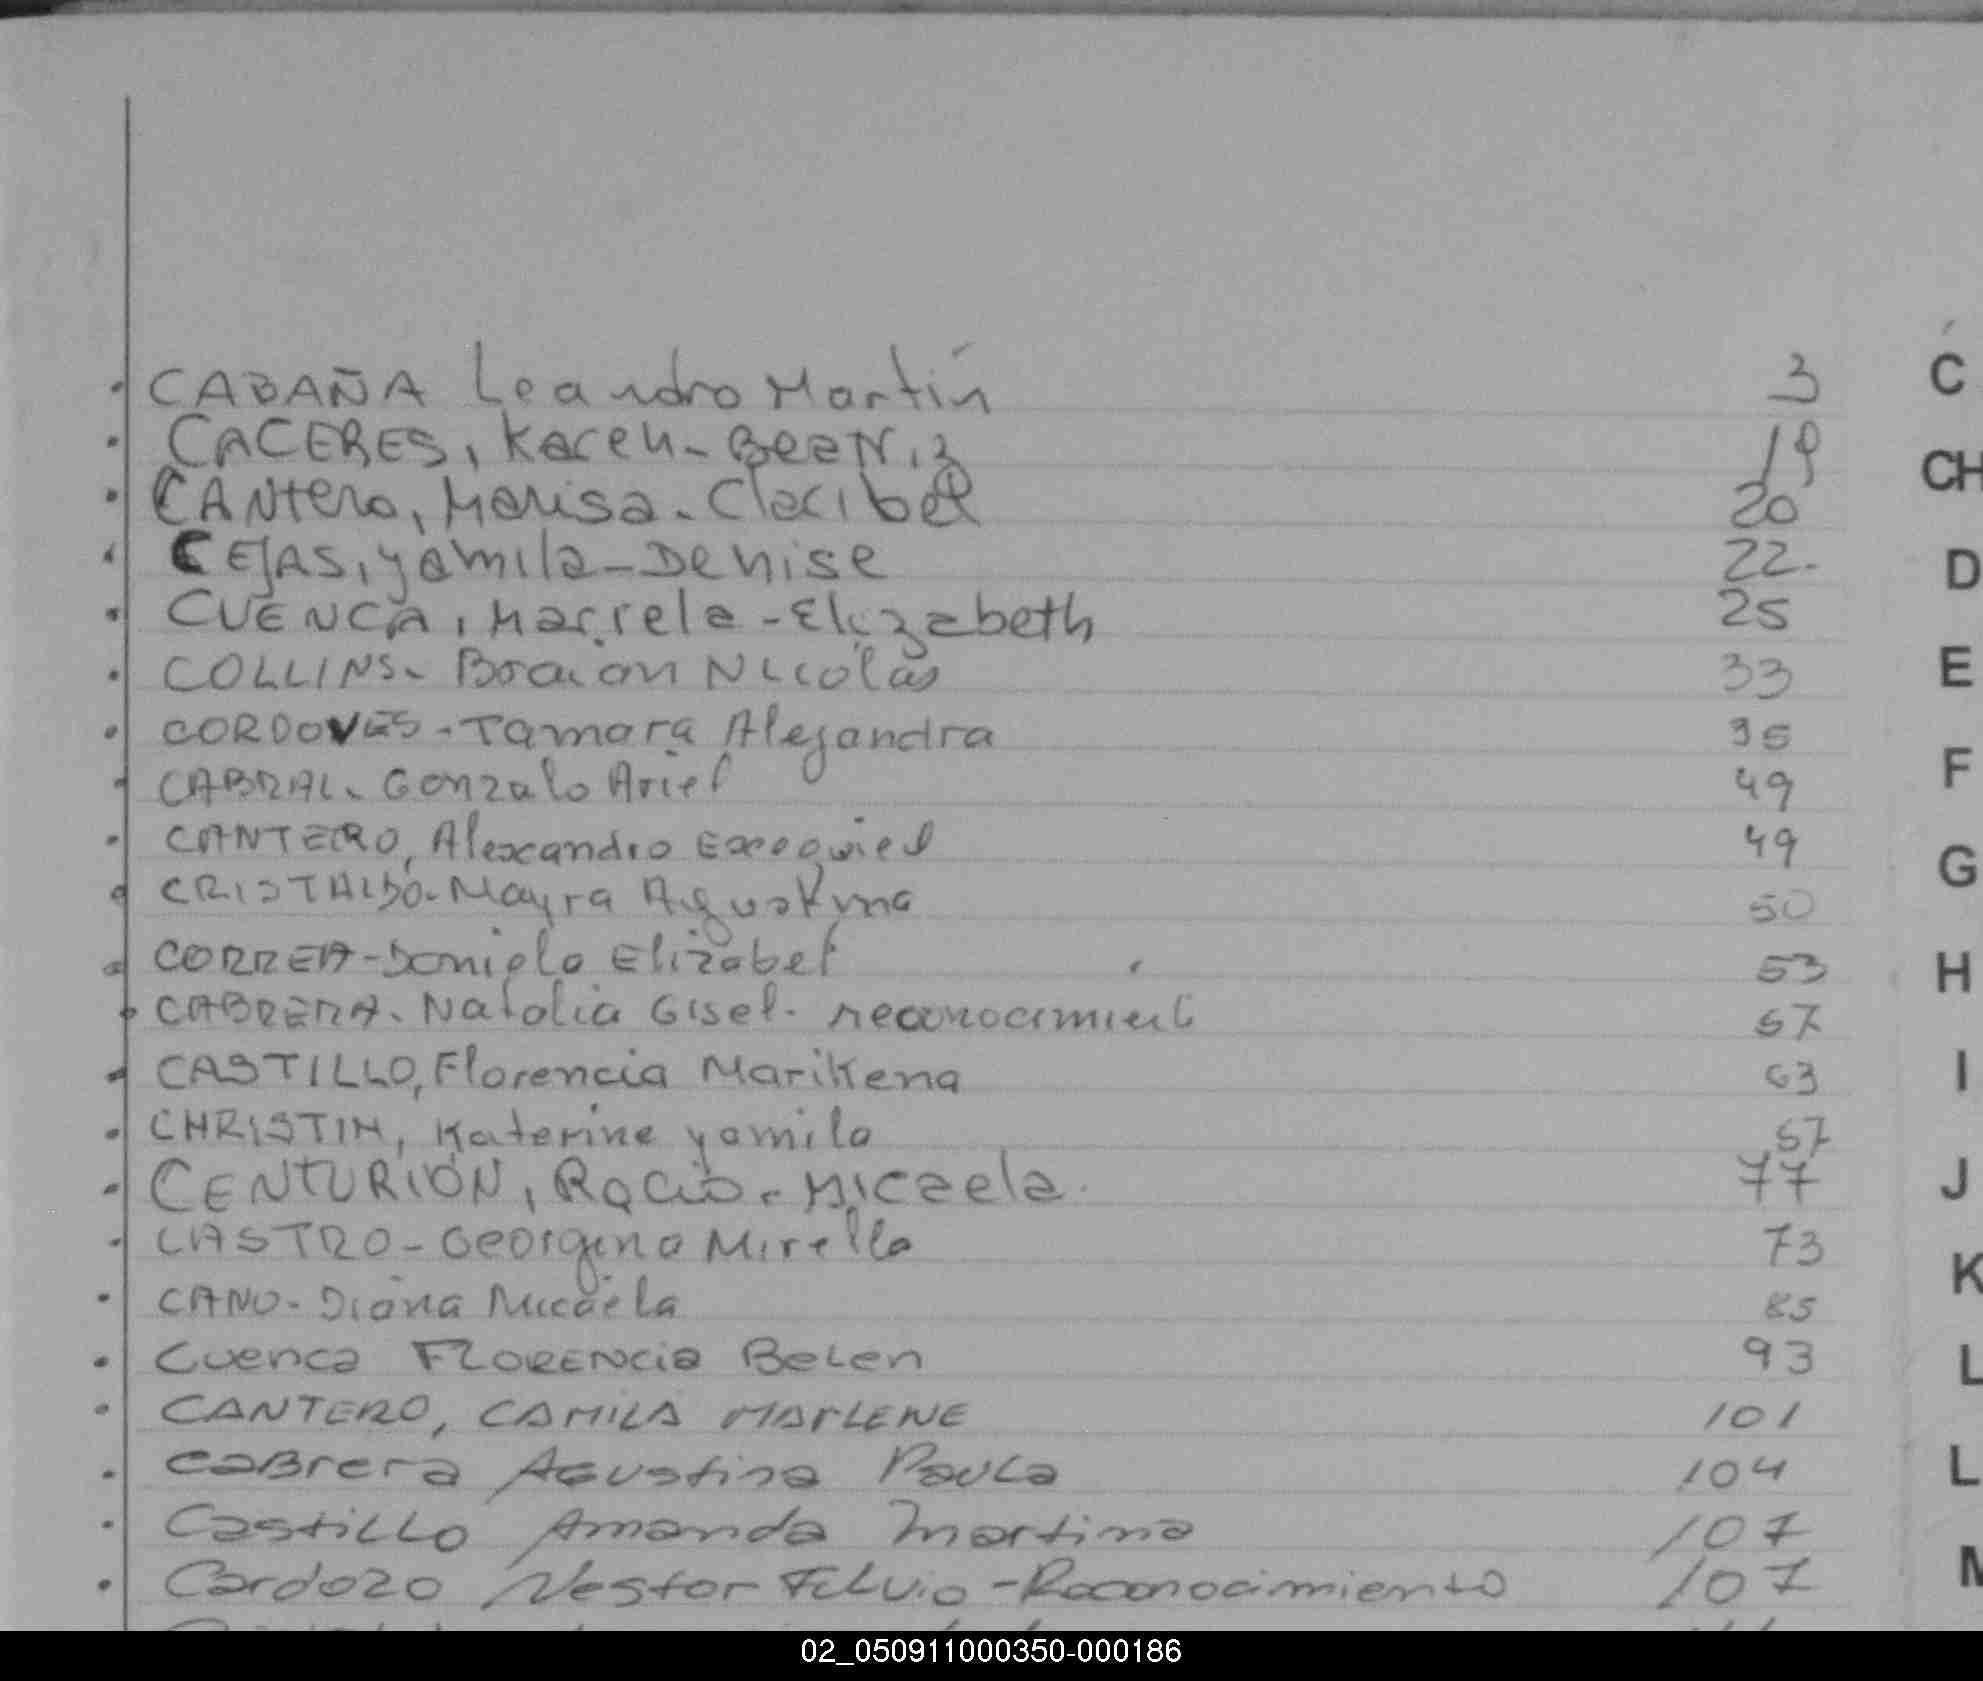 C
CABAÑA Leandro Martín 3
CACERES, Karen-Beatriz 19
CH
CANtero, Marisa-Claribel 20
CEJAS, yamila-Denise 22.
D
CUENCA, Marcela-Elizabeth 25
COLLINS- Braian Nicolás 33
E
CORDOVES-Tamara Alejandra 35
CABRAL- Gonzalo Ariel 49
F
CANTERO, Alexandro Exequiel 49
G
CRISTALDO-Mayra Agustina 50
CORREA-Daniela Elizabet 53
H
CABRERA- Natalia Gisel- reconocimient 57
CASTILLO, Florencia Marikena 63
I
CHRISTIN, Katerine yamila 67
CENTURIÓN, Rocio-Micaela. 77
J
CASTRO-Georgina Mirella 73
CANO-Diana Micaela 85
K
Cuenca FLORENCia BeLen 93
L
CANTERO, CAMILA MARLENE 101
CaBrera AGustina PauLa 104
L
CastiLLo Amanda Martina 107
Cardozo Nestor FuLvio-Reconocimiento 107
M
02_050911000350-000186